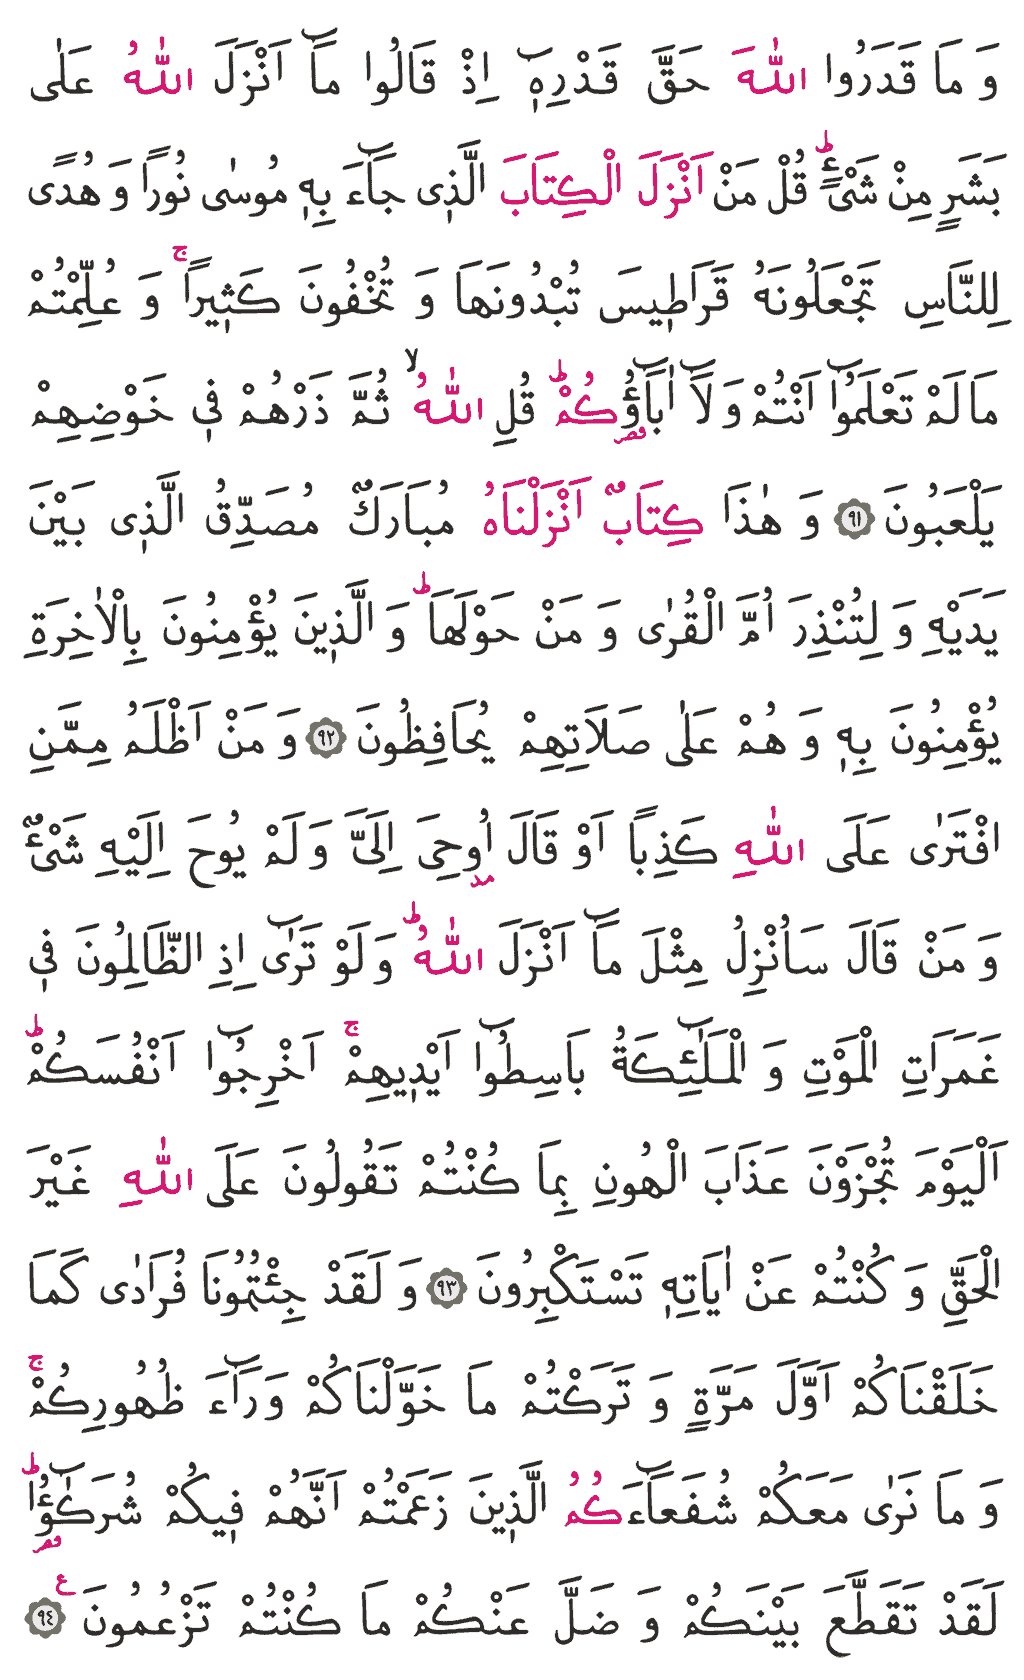 وَ مَا قَدَرُوا اللّٰهَ حَقَّ قَدْرِهٖٓ اِذْ قَالُوا مَٓا اَنْزَلَ اللّٰهُ عَلٰى
بَشَرٍ مِنْ شَىْءٍؕ قُلْ مَنْ اَنْزَلَ الْكِتَابَ الَّذٖى جَٓاءَ بِهٖ مُوسٰى نُورًا وَ هُدًى
لِلنَّاسِ تَجْعَلُونَهُ قَرَاطٖيسَ تُبْدُونَهَا وَ تُخْفُونَ كَثٖيرًاۚ وَ عُلِّمْتُمْ
مَا لَمْ تَعْلَمُٓوا اَنْتُمْ وَ لَٓا اٰبَٓاؤُ۬كُمْؕ قُلِ اللّٰهُۙ ثُمَّ ذَرْهُمْ فٖى خَوْضِهِمْ
يَلْعَبُونَ ﴿٩١﴾ وَ هٰذَا كِتَابٌ اَنْزَلْنَاهُ مُبَارَكٌ مُصَدِّقُ الَّذٖى بَيْنَ
يَدَيْهِ وَ لِتُنْذِرَ اُمَّ الْقُرٰى وَ مَنْ حَوْلَهَاؕ وَ الَّذٖينَ يُؤْمِنُونَ بِالْاٰخِرَةِ
يُؤْمِنُونَ بِهٖ وَ هُمْ عَلٰى صَلَاتِهِمْ يُحَافِظُونَ ﴿٩٢﴾ وَ مَنْ اَظْلَمُ مِمَّنِ
افْتَرٰى عَلَى اللّٰهِ كَذِبًا اَوْ قَالَ اُو۫حِىَ اِلَىَّ وَ لَمْ يُوحَ اِلَيْهِ شَىْءٌ
وَ مَنْ قَالَ سَاُنْزِلُ مِثْلَ مَٓا اَنْزَلَ اللّٰهُؕ وَ لَوْ تَرٰٓى اِذِ الظَّالِمُونَ فٖى
غَمَرَاتِ الْمَوْتِ وَ الْمَلٰٓئِكَةُ بَاسِطُٓوا اَيْدٖيهِمْۚ اَخْرِجُٓوا اَنْفُسَكُمْؕ
اَلْيَوْمَ تُجْزَوْنَ عَذَابَ الْهُونِ بِمَا كُنْتُمْ تَقُولُونَ عَلَى اللّٰهِ غَيْرَ
الْحَقِّ وَ كُنْتُمْ عَنْ اٰيَاتِهٖ تَسْتَكْبِرُونَ ﴿٩٣﴾ وَ لَقَدْ جِئْتُمُونَا فُرَادٰى كَمَا
خَلَقْنَاكُمْ اَوَّلَ مَرَّةٍ وَ تَرَكْتُمْ مَا خَوَّلْنَاكُمْ وَرَٓاءَ ظُهُورِكُمْۚ
وَ مَا نَرٰى مَعَكُمْ شُفَعَٓاءَكُمُ الَّذٖينَ زَعَمْتُمْ اَنَّهُمْ فٖيكُمْ شُرَكٰٓؤُ۬اؕ
لَقَدْ تَقَطَّعَ بَيْنَكُمْ وَ ضَلَّ عَنْكُمْ مَا كُنْتُمْ تَزْعُمُونَ ع ﴿٩٤﴾